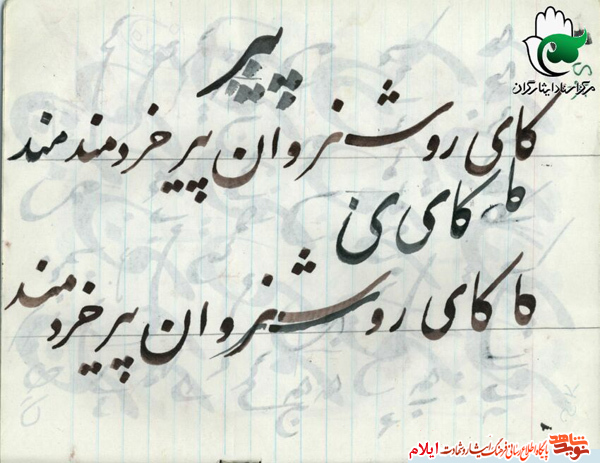 پیر
مرکز اسناد ایثارگران
کای روشنروان پیر خردمند مند
کا کای ی
کا کای روشنروان پیر خردمند
نوید شاهد پایگاه اطلاع رسانی فرهنگ ایثار و شهادت ایلام